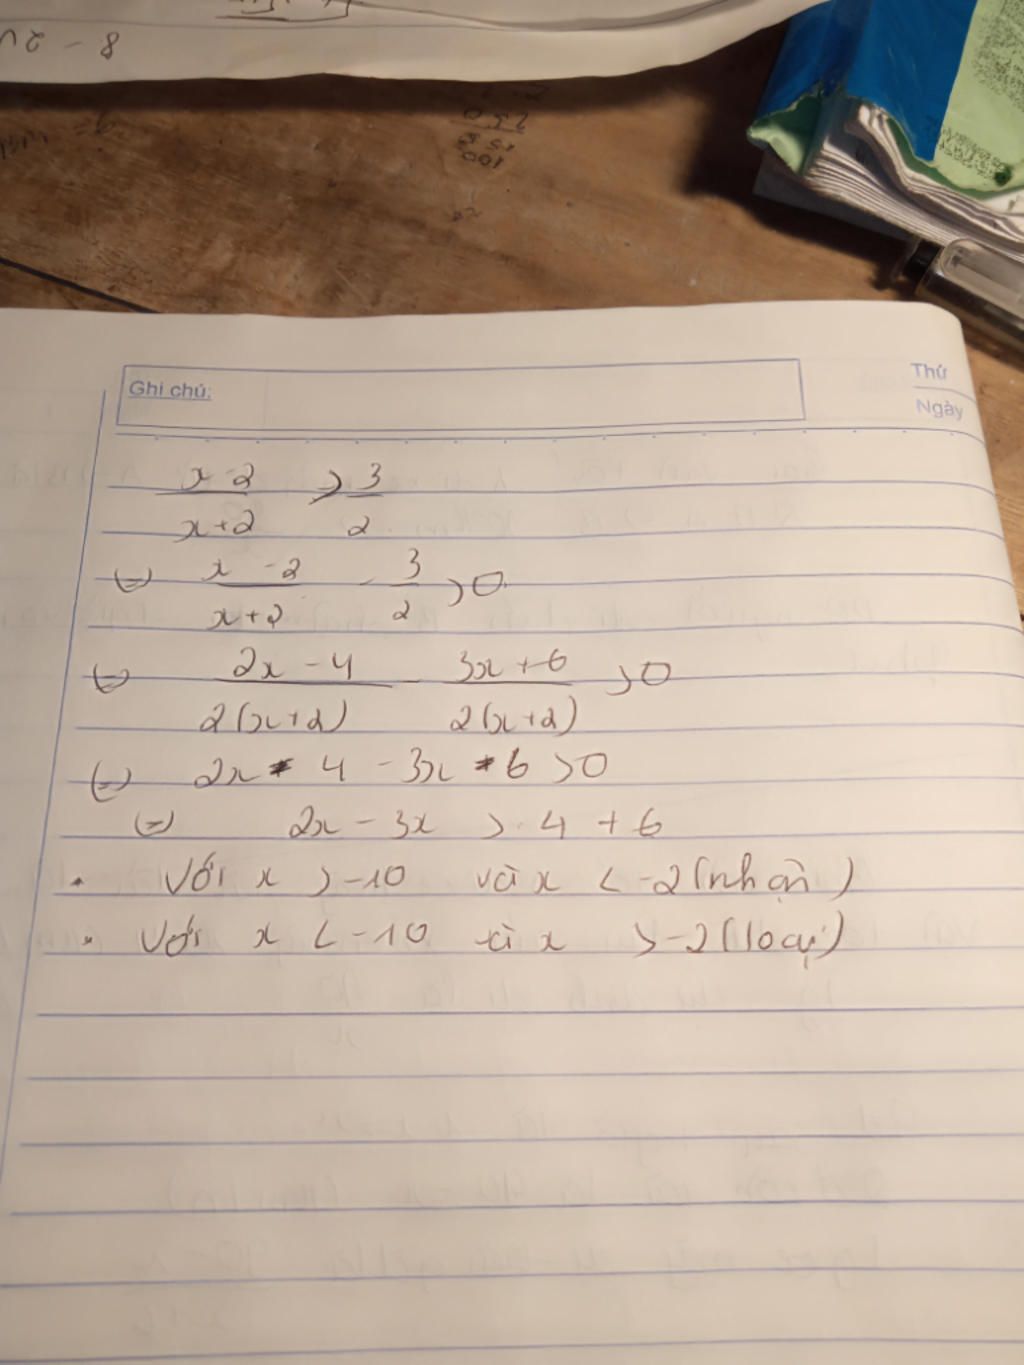 8 - 2
250
100
Ghi chú:
Thứ
Ngày
x - 2 / x + 2 > 3 / 2
(=) x - 2 / x + 2 - 3 / 2 > 0
(=) 2x - 4 / 2(x+2) - 3x + 6 / 2(x+2) > 0
(=) 2x - 4 - 3x - 6 > 0
(=) 2x - 3x > 4 + 6
• Với x > -10 và x < -2 (nhận)
• Với x < -10 và x > -2 (loại)